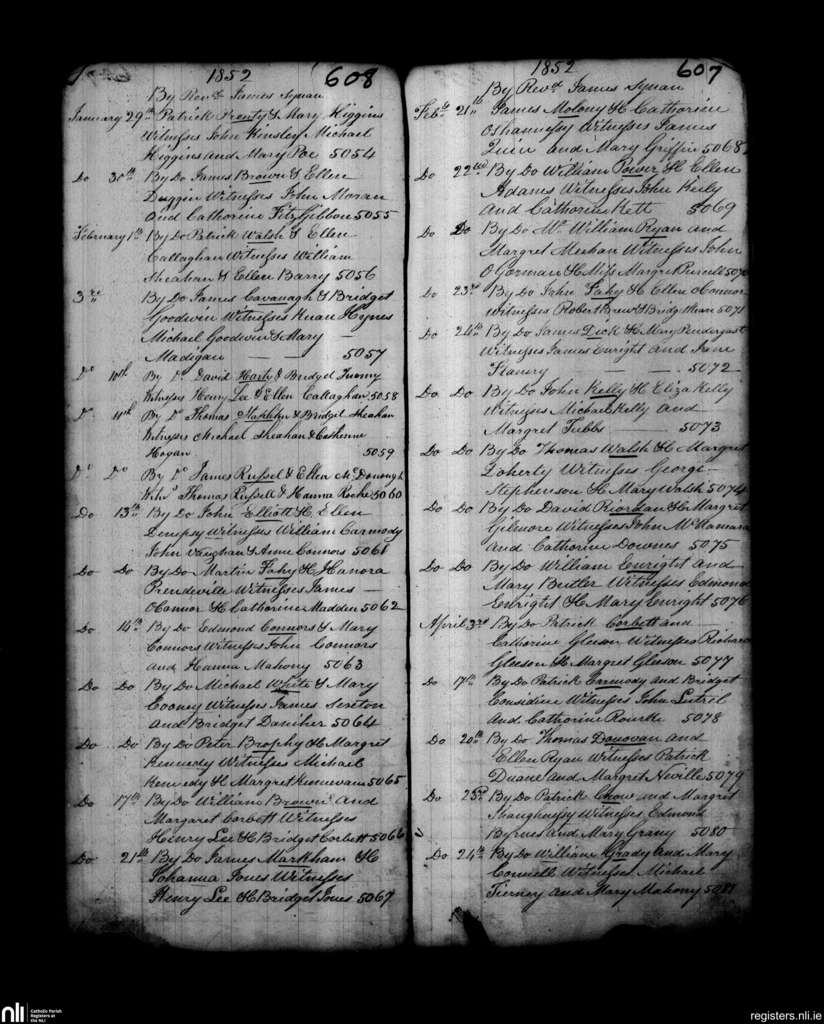 1852 608
By Revd. James Synan
January 29th Patrick Prenty & Mary Higgins
Witnesses John Hensley Michael
Higgins and Mary Poe 5054
Do 30th By Do James Brown & Ellen
Duggin Witnesses John Moran
and Catherine FitzGibbon 5055
February 1st By Do Patrick Walsh & Ellen
Callaghan Witnesses William
Sheahan & Ellen Barry 5056
3rd By Do James Cavanagh & Bridget
Goodwin Witnesses Kean Hynes
Michael Goodwin & Mary —
Madigan — — 5057
Do 10th By Do David Harty & Bridget
Witnesses Henry Lee & Ellen Callaghan 5058
Do 11th By Do Thomas & Bridget Sheahan
Witnesses Michael Sheahan & Catherine
Hogan 5059
Do Do By Do James Russel & Ellen McDonough
Thomas Russell & Hanna Roche 5060
Do 13th By Do John Elliott & Ellen
Dempsy Witnesses William Carmody
John Vaughan & Anne Connors 5061
Do Do By Do Martin Fahy & Hanora
Prendeville Witnesses James —
OConnor & Catherine Madden 5062
Do 14th By Do Edmond Connors & Mary
Connors Witnesses John Connors
and Hanna Mahony 5063
Do Do By Do Michael White & Mary
Cooney Witnesses James Sexton
and Bridget Daniher 5064
Do Do By Do Peter Brophy & Margret
Kennedy Witnesses Michael
Kennedy & Margret 5065
Do 17th By Do William Brown and
Margaret Corbett Witnesses
Henry Lee & Bridget Corbett 5066
Do 21th By Do James Markham &
Johanna Jones Witnesses
Henry Lee & Bridget Jones 5067
1852 607
By Revd. James Synan
Feb. 21th James Molony & Catherine
OShannessy Witnesses James
Quin and Mary Griffin 5068
Do 22nd By Do William Power & Ellen
Adams Witnesses John Kiely
and Catherine Kett 5069
Do Do By Do Mr. William Ryan and
Margret Meehan Witnesses John
OGorman & Miss Margret Purcell 5070
Do 23rd By Do John Fahy & Ellen OConnor
Witnesses Robert & Bridget 5071
Do 24th By Do James Dick & Mary Pendergast
Witnesses James Enright and Jane
— — 5072
Do Do By Do John Kelly & Eliza Kelly
Witnesses Michael Kelly and
Margret Tubbs — 5073
Do Do By Do Thomas Walsh & Margret
Doherty Witnesses George —
Stephenson & Mary Walsh 5074
Do Do By Do David Riordan & Margret
Gilmore Witnesses John McNamara
and Catherine Downes 5075
Do Do By Do William Enright and
Mary Butler Witnesses Edmond
Enright & Mary Enright 5076
April 3rd By Do Patrick Corbett and —
Catherine Gleeson Witnesses Richard
Gleeson & Margret Gleeson 5077
Do 17th By Do Patrick Carmody and Bridget
Considine Witnesses John
and Catherine Rourke 5078
Do 20th By Do Thomas Donovan and
Ellen Ryan Witnesses Patrick
Duane and Margret Neville 5079
Do 23rd By Do Patrick and Margret
Shaughnessy Witnesses Edmond
Byrnes and Mary Grany 5080
Do 24th By Do William Grady and Mary
Connell Witnesses Michael
Tierney and Mary Mahony 5081
nli Catholic Parish
Registers at
the NLI
registers.nli.ie